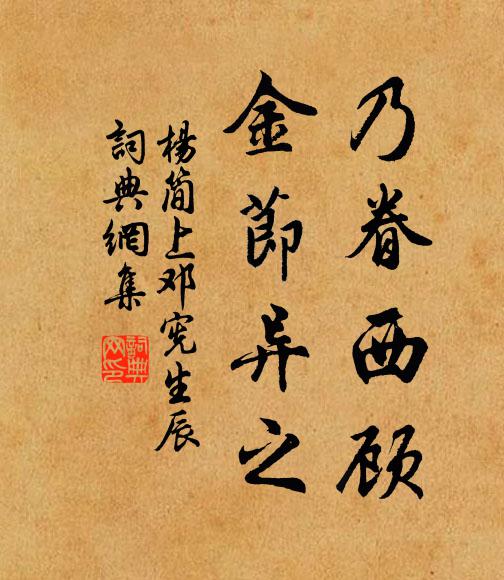 乃眷西顾
金節异之
楊简上邓宪生辰
詞典網集
詞典網印